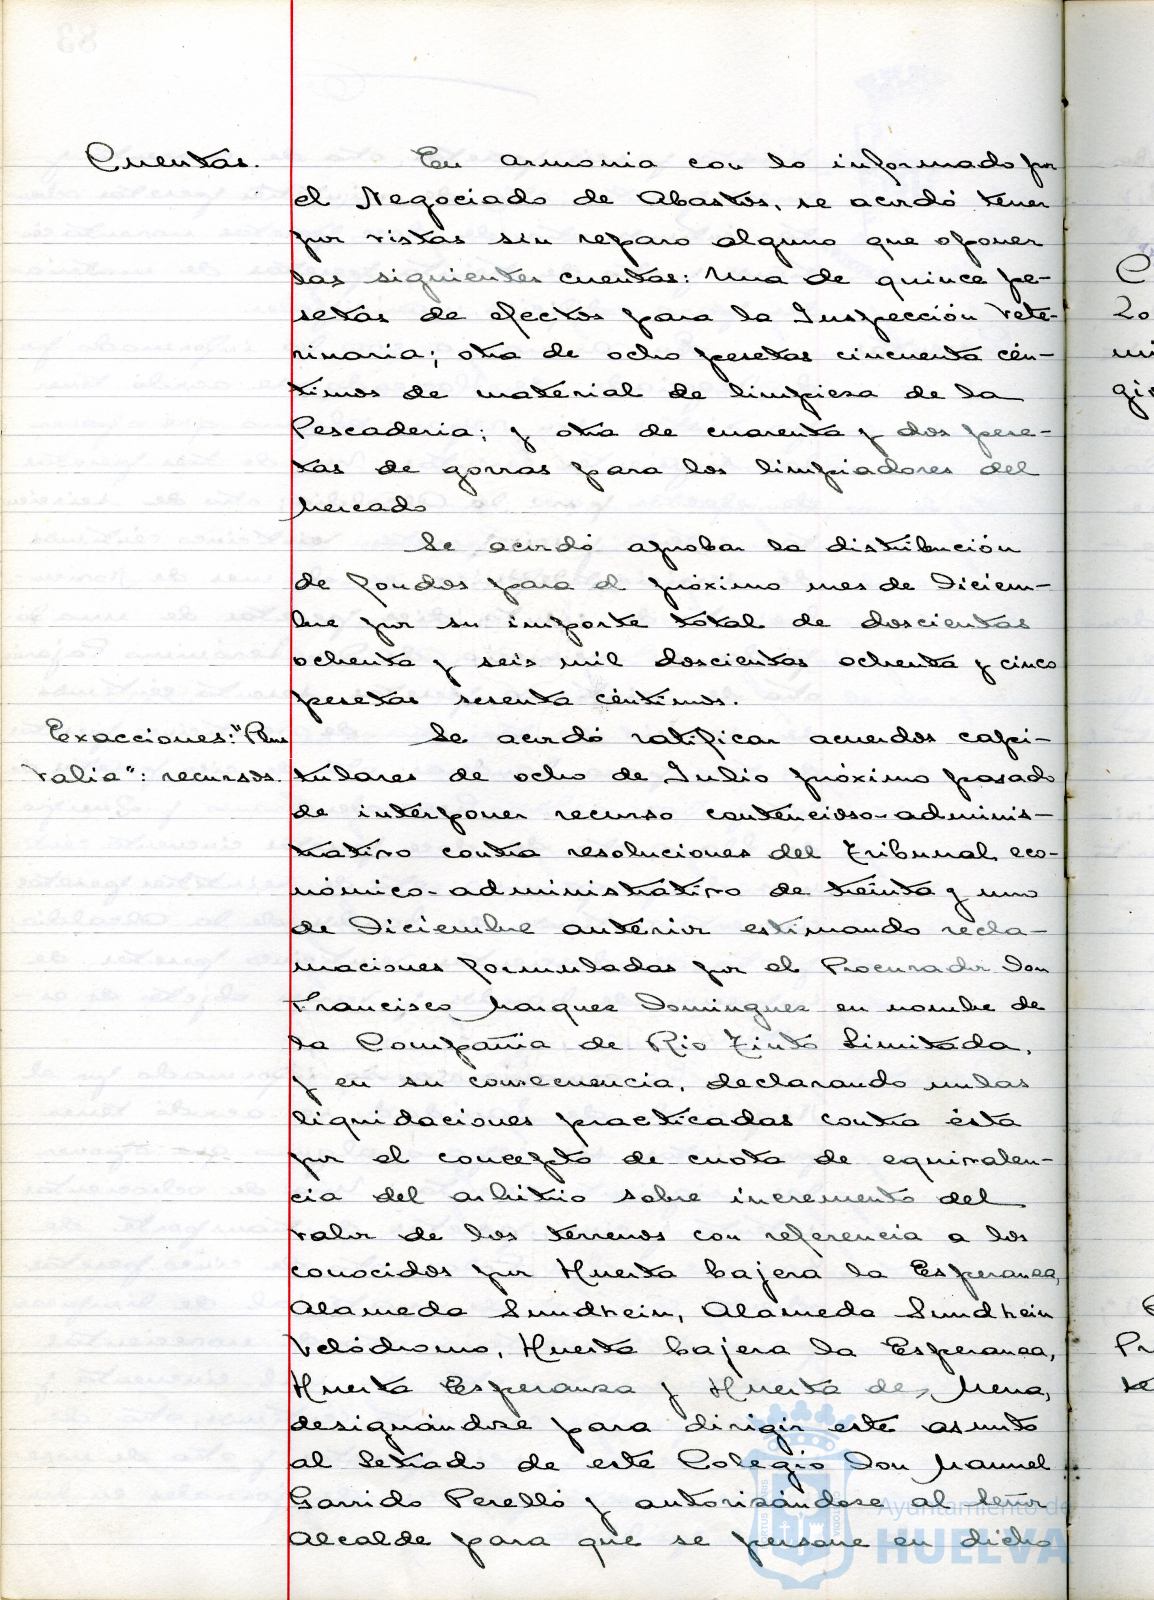 Cuentas.
En armonia con lo informado por
el Negociado de Abastos, se acordó tener
por vistas sin reparo alguno que oponer
las siguientes cuentas: Una de quince pe-
setas de efectos para la Inspección Vete-
rinaria; otra de ocho pesetas cincuenta cén-
timos de material de limpieza de la
Pescaderia; y otra de cuarenta y dos pese-
tas de gorras para los limpiadores del
Mercado
Se acordó aprobar la distribución
de fondos para el próximo mes de Diciem-
bre por su importe total de doscientas
ochenta y seis mil doscientas ochenta y cinco
pesetas sesenta céntimos.
Exacciones: "Plus
Valia": recursos.
Se acordó ratificar acuerdos capi-
tulares de ocho de Julio próximo pasado
de interponer recurso contencioso-adminis-
trativo contra resoluciones del Tribunal eco-
nómico-administrativo de treinta y uno
de Diciembre anterior estimando recla-
maciones formuladas por el Procurador Don
Francisco Marquez Dominguez en nombre de
la Compañia de Rio Tinto Limitada,
y en su consecuencia, declarando nulas
liquidaciones practicadas contra ésta
por el concepto de cuota de equivalen-
cia del arbitrio sobre incremento del
valor de los terrenos con referencia a los
conocidos por Huerta bajera la Esperanza,
Alameda Sundhein, Alameda Sundhein
Velódromo, Huerta bajera la Esperanza,
Huerta Esperanza y Huerta de Mena,
designándose para dirigir este asunto
al Letrado de este Colegio Don Manuel
Garrido Perelló y autorizándose al Señor
Alcalde para que se persone en dicho
Ayuntamiento de
HUELVA
C
20
mi
gir
Pr
te